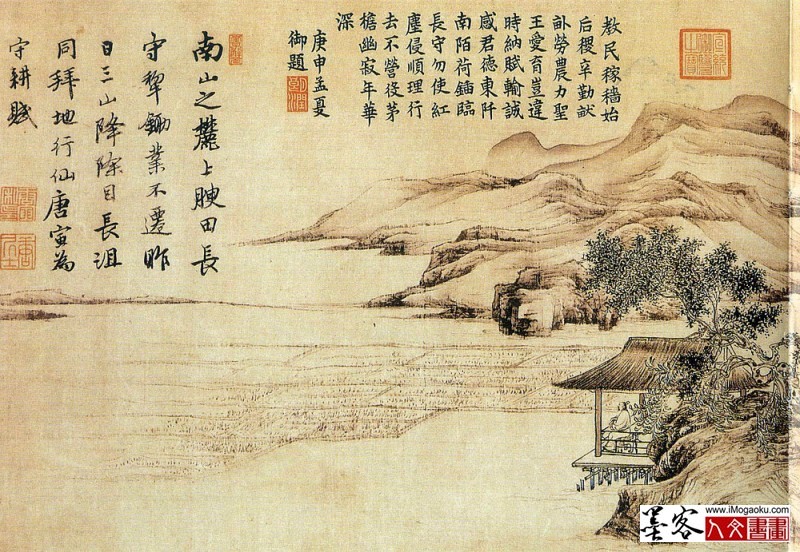 教民稼穡始
后稷辛勤畎
畝勞農力聖
王愛育豈違
時納賦輸誠
感君德東阡
南陌荷鍤臨
長守勿使紅
塵侵順理行
去不營役茅
檐幽寂年華
深
庚申孟夏
御題
南山之麓上腴田長
守犁鋤業不遷昨
日三山降除目長沮
同拜地行仙唐寅為
守耕賦
www.iMogaoku.com
墨客人文書畫